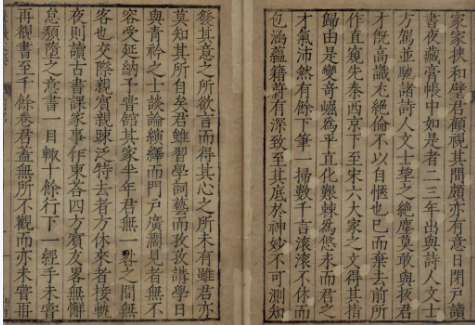 家家挾和璧君顧視其間頗亦有意日閉戸讀
書夜藏膏帳中如是者二三年出與詩人文士
方駕並馳諸詩人文士望之絶塵莫敢與抜君
才旣高識尤絶倫不以自愜也已而棄去前所
作直窺先秦西京下至宋六大家之文得其指
歸由是變奇崛爲平直化艱棘爲悠永而君之
才氣沛然有餘下筆一掃數千言滚滚不休而
包涵蘊籍蔚有深致至其底於神妙不可測知
發其意之所欲言而得其心之所未有雖君亦
莫知其所自矣君雖習學詞藝而孜孜講學日
與青衿之士談論演繹而門戸廣濶見者無不
容受延納予嘗館其家半年君無一𣆀之間無
客也交際親賓親踈泛特去者方休來者接軼
夜則讀古書課家事作東答四方賓友畧無懈
怠頽墮之意書一目輙十餘行下一經手未嘗
再觀書至千餘卷君蓋無所不觀而亦未嘗再